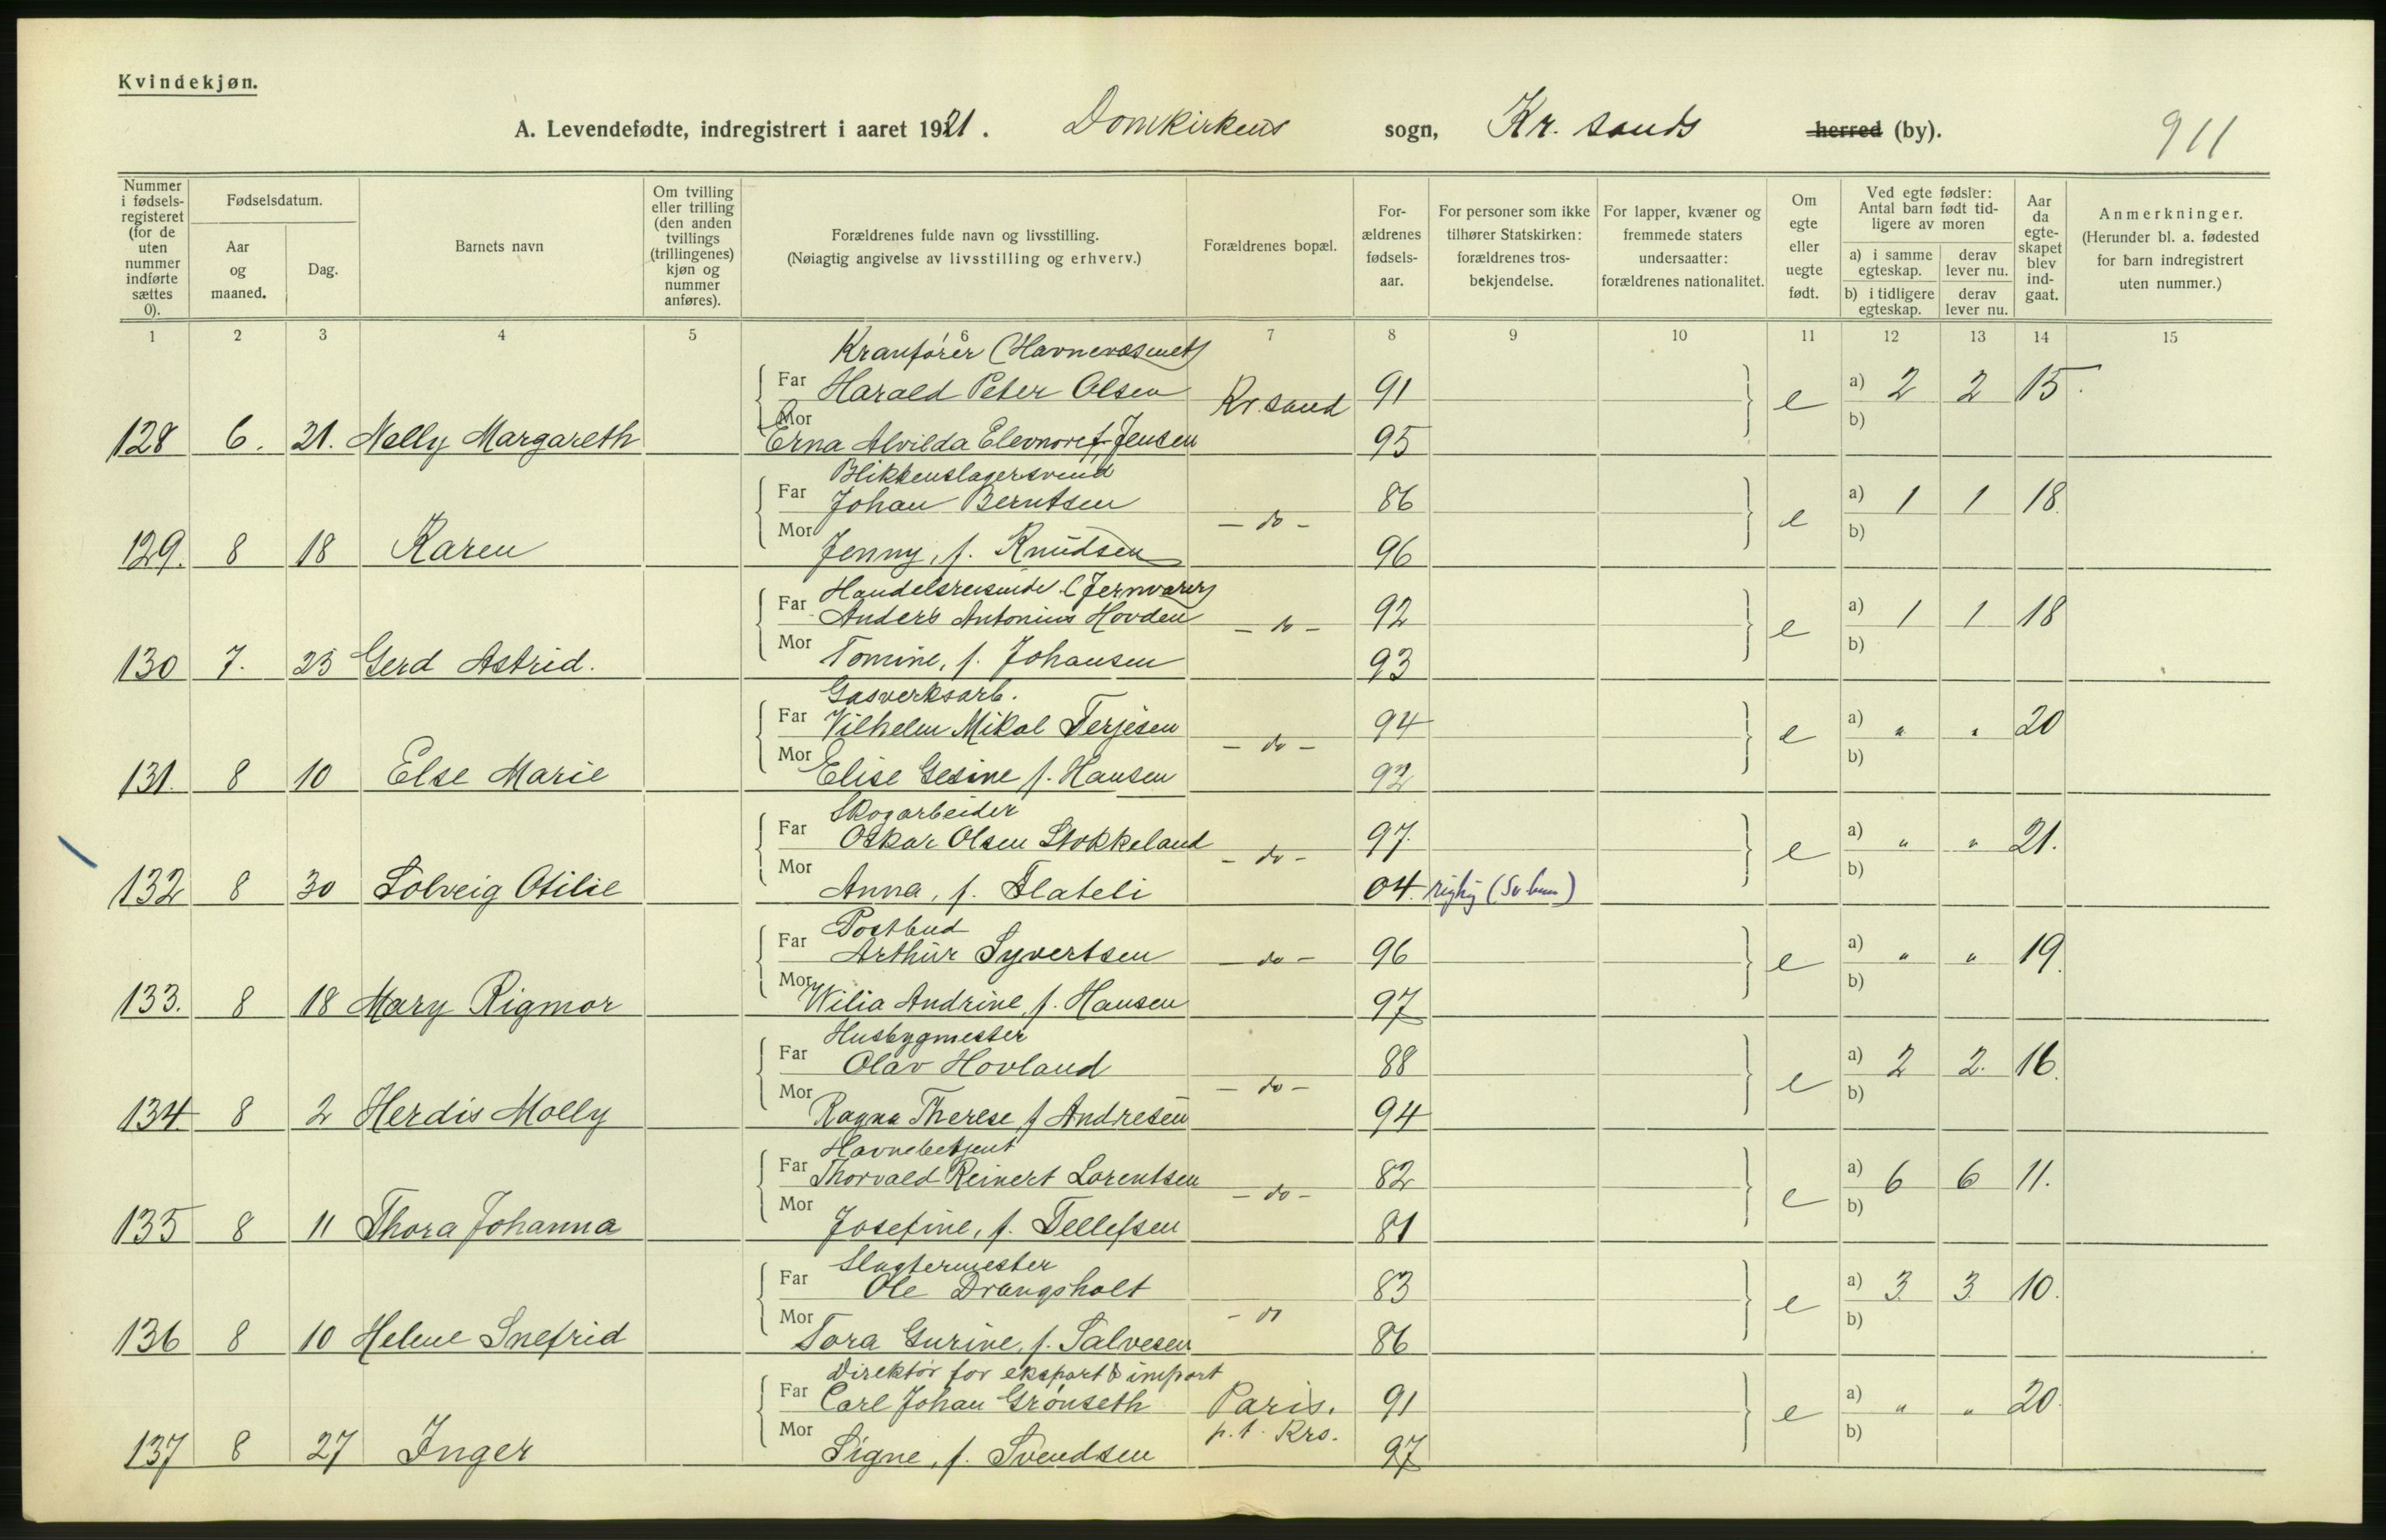 Kvindekjøn.
A. Levendefødte, indregistrert i aaret 1921. Domkirkens sogn, Kr. sands herred (by). 911
Nummer i fødsels-registeret (for de uten nummer indførte sættes 0).
Fødselsdatum.
Aar og maaned.
Dag.
Barnets navn
Om tvilling eller trilling (den anden tvillings (trillingenes) kjøn og nummer anføres).
Forældrenes fulde navn og livsstilling.
(Nøiagtig angivelse av livsstilling og erhverv.)
Forældrenes bopæl.
For-ældrenes fødsels-aar.
For personer som ikke tilhører Statskirken: forældrenes tros-bekjendelse.
For lapper, kvæner og fremmede staters undersaatter: forældrenes nationalitet.
Om egte eller uegte født.
Ved egte fødsler: Antal barn født tid-ligere av moren
a) i samme egteskap.
derav lever nu.
b) i tidligere egteskap.
derav lever nu.
Aar da egte-skapet blev ind-gaat.
Anmerkninger.
(Herunder bl. a. fødested for barn indregistrert uten nummer.)
1 2 3 4 5 6 7 8 9 10 11 12 13 14 15
Kranfører (Havnevæsenet)
Far Harald Peter Olsen Kr.sand 91 e a) 2 2 15.
Mor b)
128 6. 21. Nelly Margareth Erna Alvilda Elevnore f. Jensen 95
Blikkenslagersvend
Far Johan Berntsen - do - 86 e a) 1 1 18.
Mor b)
129. 8 18 Karen Jenny, f. Knudsen 96
Handelsreisende (Jernvarer)
Far Anders Antonius Hovden - do - 92 e a) 1 1 18
Mor b)
130 7. 23 Gerd Astrid. Tomine, f. Johansen 93
Gasverksarb.
Far Vilhelm Mikal Terjesen - do - 94 e a) " " 20
Mor b)
131. 8 10 Else Marie Elise Gesine f. Hansen 92
Skogarbeider
Far Oskar Olsen Stokkeland - do - 97. e a) " " 21.
Mor b)
132 8 30 Solveig Otilie Anna, f. Flateli 04. rigtig
Postbud
Far Arthur Syvertsen - do - 96 e a) " " 19.
Mor b)
133. 8 18 Mary Rigmor Wilia Andrine, f. Hansen 97
Husbygmester
Far Olav Hovland - do - 88 e a) 2 2. 16.
Mor b)
134 8 2 Herdis Molly Ragna Therese f Andresen 94
Havnebetjent
Far Thorvald Reinert Lorentsen - do - 82 e a) 6 6 11.
Mor b)
135 8 11 Thora Johanna Josefine, f. Tellefsen 81
Slagtermester
Far Ole Drangsholt - do 83 e a) 3 3 10.
Mor b)
136 8 10 Helene Snefrid Tora Gurine, f. Salvesen 86
Direktør for eksport & import
Far Carl Johan Grønseth Paris. 91 e a) " " 20.
Mor p.t. Krs. b)
137 8 27 Inger Signe, f. Svendsen 97